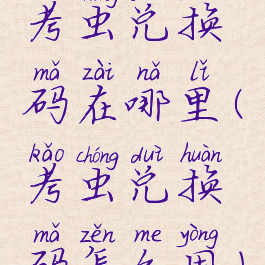 考虫兑换
mǎ zài nǎ lǐ
码在哪里(
kǎo chóng duì huàn
考虫兑换
mǎ zěn me yòng
码怎么用)